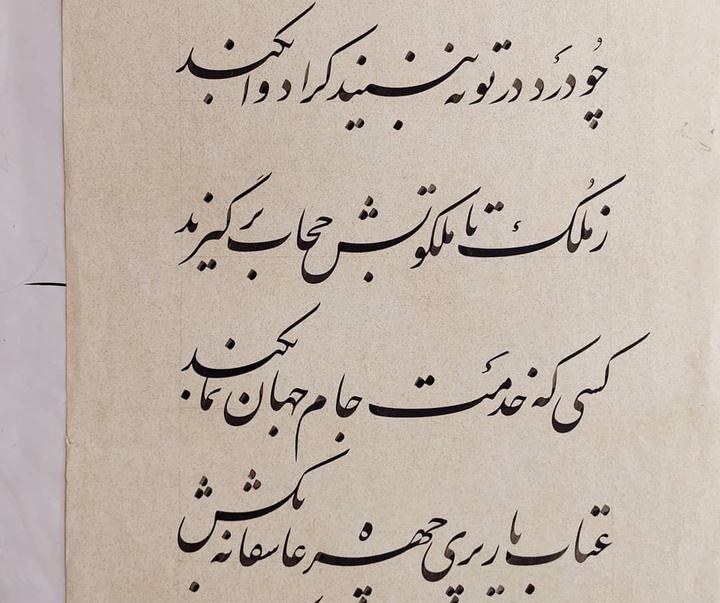 چو درد در تو نبیند کرا دوا بکند
ز ملک تا ملکوتش حجاب برگیرند
کسی که خدمت جام جهان نما بکند
عتاب یار پری چهره عاشقانه بکش